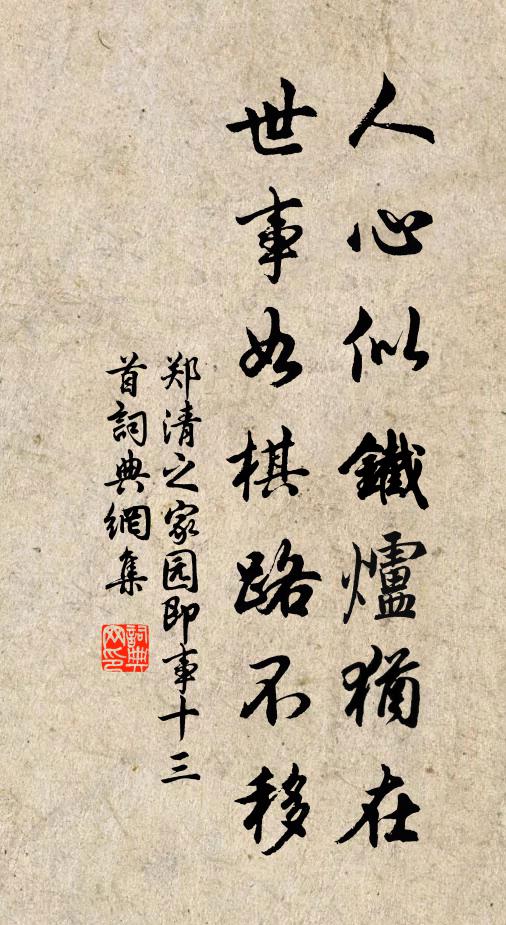 人心似鐵爐猶在
世事如棋路不移
郑清之家园即事十三
首詞典網集
詞典
网印